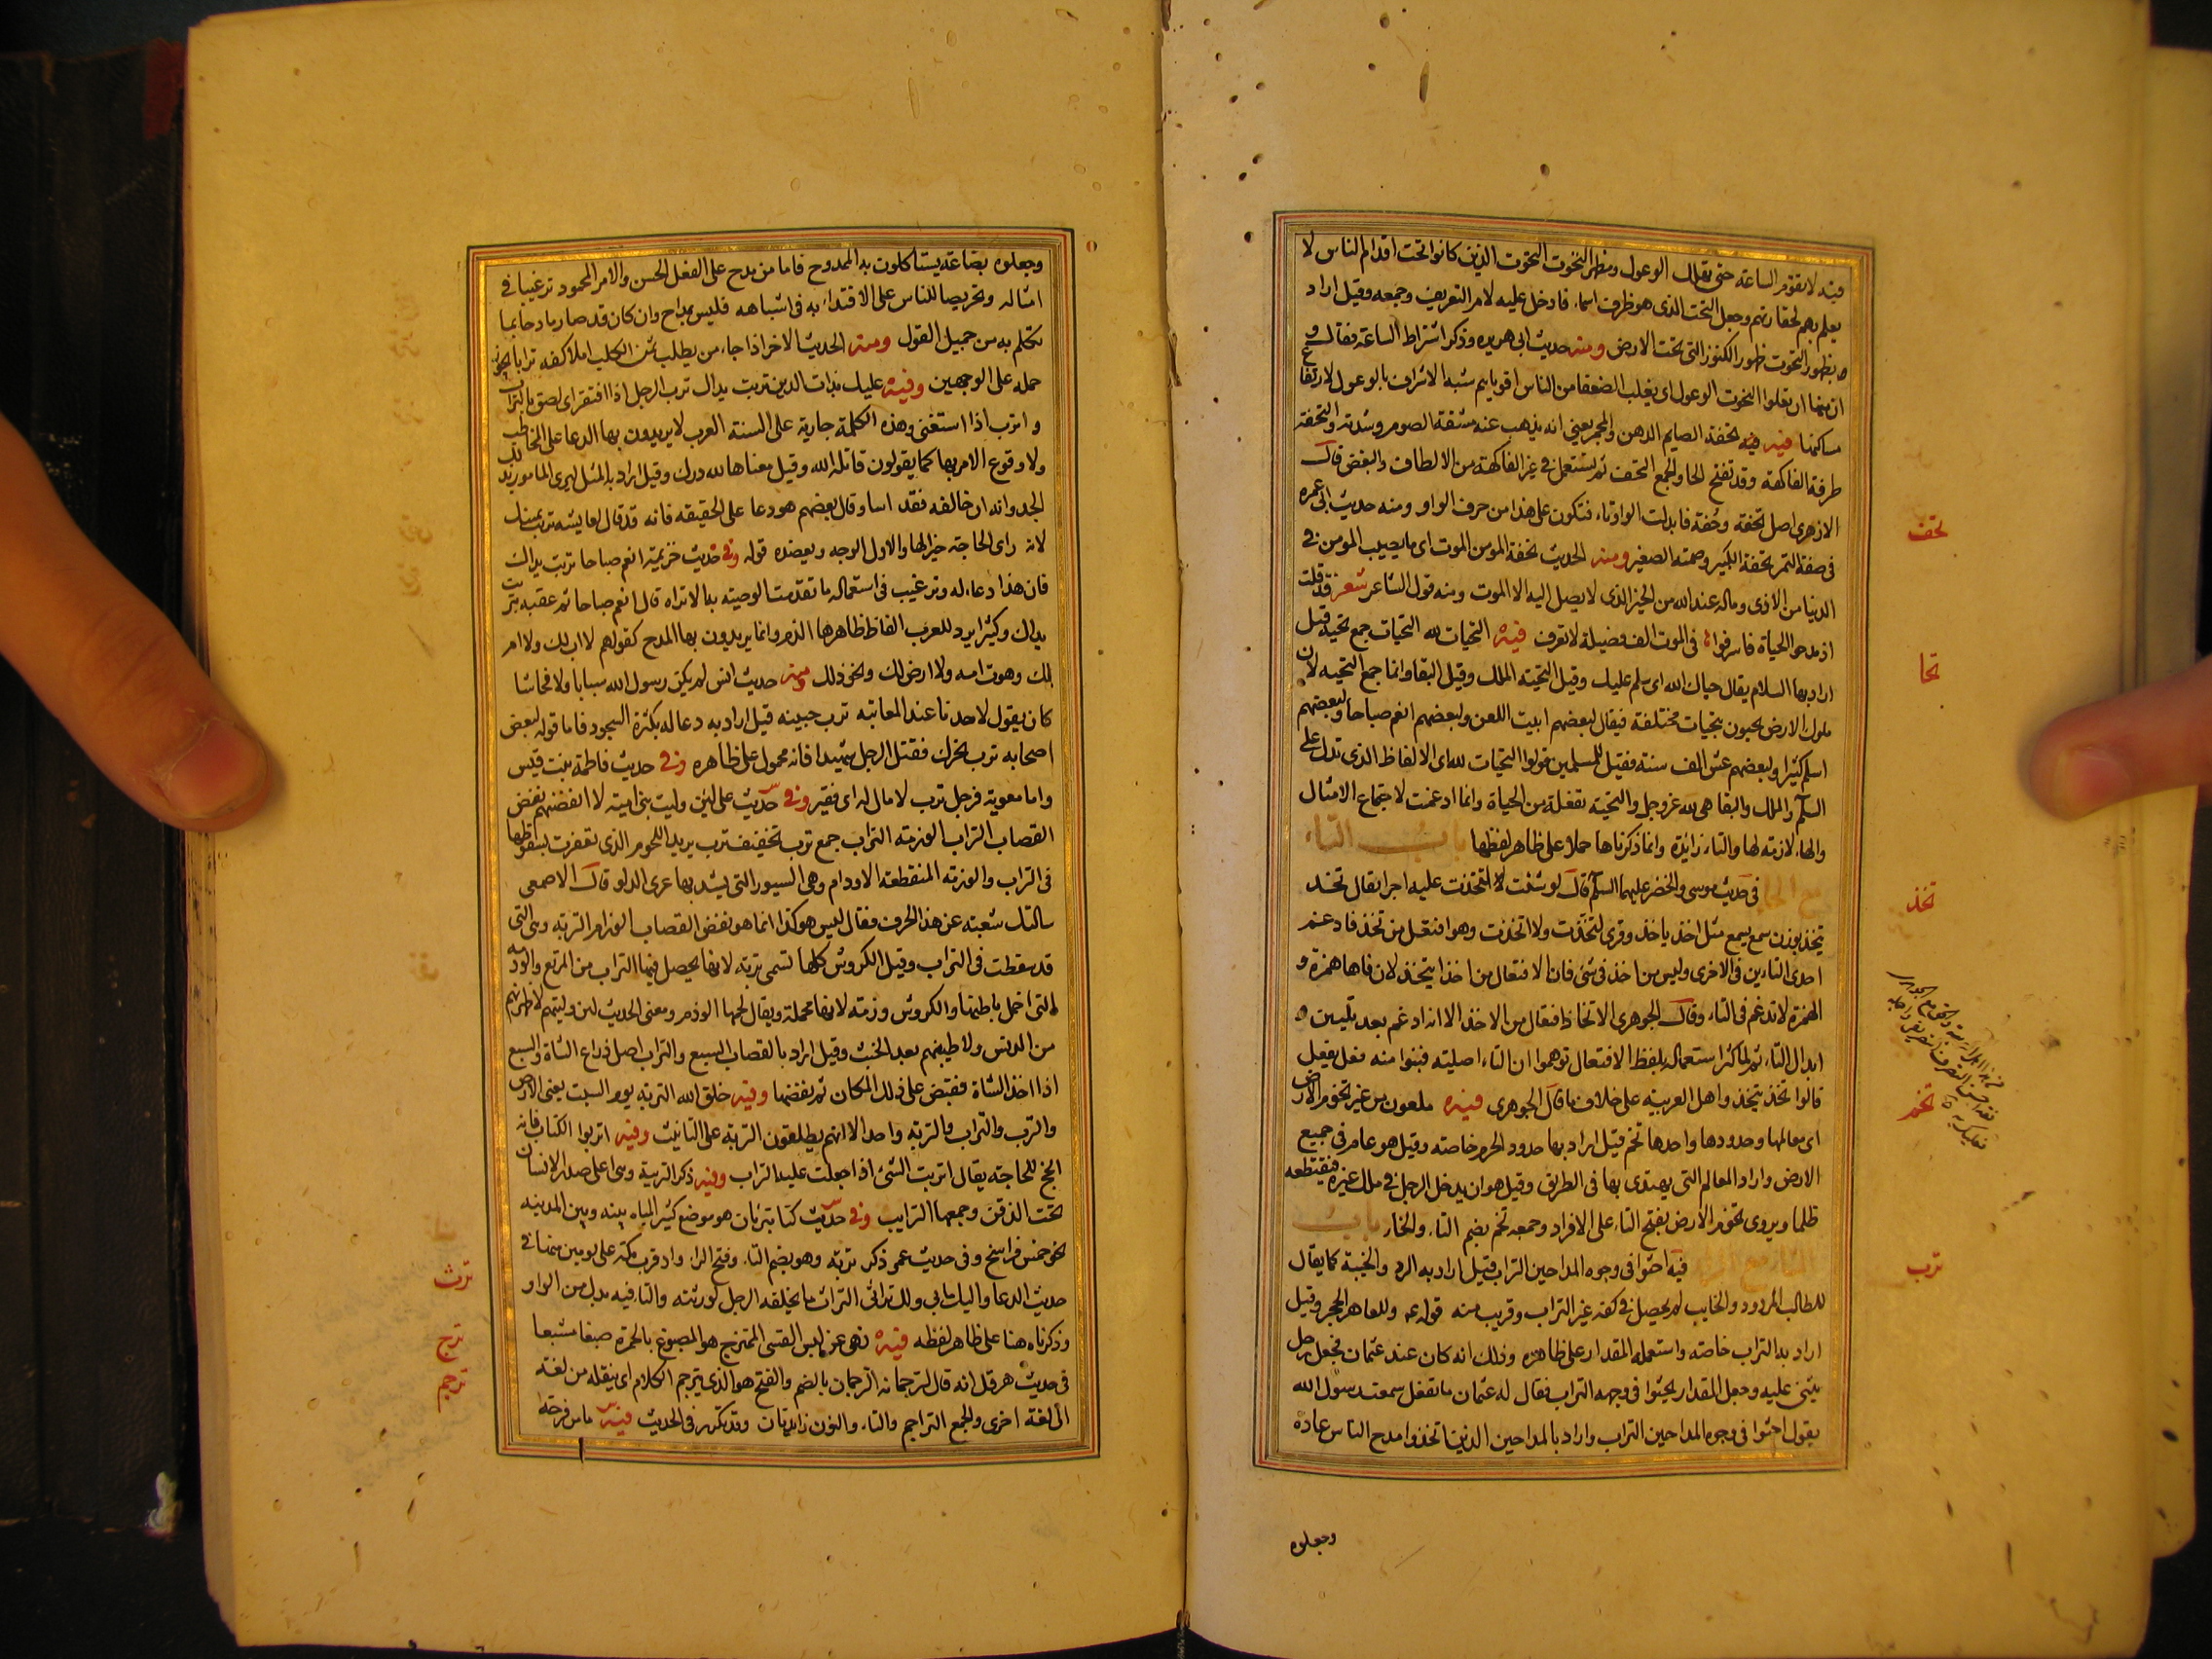 فيه لا تقوم الساعة حتى يهلك الوعول ويظهر التحوت التحوت الذين كانوا تحت اقدام الناس لا
يعلم بهم لحقارتهم وجعل التحت الذى هو ظرف اسماء فادخل عليه لام التعريف وجمعه وقيل اراد
بظهور التحوت ظهور الكنوز التى تحت الارض ومنه حديث ابى هريره وذكر اشراط الساعة فقال و
ان منها ان تعلوا التحوت الوعول اى يغلب الضعفا من الناس اقوياهم شبه الاشراف بالوعول لارتفاع
مساكنها فيه تحفة الصايم الدهن والمجمر يعنى انه يذهب عنه مشقة الصوم وشدته والتحفة
طرفة الفاكهة وقد تفتح الحا والجمع التحف ثم يستعمل فى غير الفاكهة من الالطاف والبغض قال
الازهرى اصل تحفة وحفة فابدلت الواو تاء فتكون على هذا من حرف الواو ومنه حديث ابى عمره
فى صفة التمر تحفة الكبير وصمته الصغير ومنه الحديث تحفة المومن الموت اى ما يصيب المومن فى
الدنيا من الاذى وماله عند الله من الخير الذى لا يصل اليه الا الموت ومنه قول الشاعر شعر قد قلت
اذ مدحوا الحياة فاسرفوا فى الموت الف فضيلة لا تعرف فيه التحيات لله التحيات جمع تحيه قيل
اراد بها السلام يقال حياك الله اى سلم عليك وقيل التحيته الملك وقيل البقا وانما جمع التحيه لان
ملوك الارض يحيون بتحيات مختلفة فيقال لبعضهم ابيت اللعن ولبعضهم انعم صباحا ولبعضهم
اسلم كثيرا ولبعضهم عش الف سنة فقيل للمسلمين قولوا التحيات لله اى الالفاظ الذى تدل على
السلم والملك والبقا هى لله عز وجل والتحية تفعلة من الحياة وانما ادغمت لاجتماع الامثال
والهاء لازمة لها والتاء زائدة وانما ذكرناها حملا على ظاهر لفظها باب التاء
مع الخا فى حديث موسى والخضر عليهما السلم قال لو شئت لتخذت عليه اجرا يقال تخذ
يتخذ بوزن سمع يسمع مثل اخذ ياخذ وقرى لتخذت ولاتخذت وهو افتعل من تخذ فادغم
احدى التاءين فى الاخرى وليس من اخذ فى شئ فان الافتعال من اخذ ايتخذ لان فاها همزة و
الهمزة لا تدغم فى التاء وقال الجوهرى الاتخاذ افتعال من الاخذ الا انه ادغم بعد تليين
ابدال التاء ثم لما كثر استعماله بلفظ الافتعال توهموا ان التاء اصلية فبنوا منه فعل يفعل
قالوا تخذ يتخذ واهل العربية على خلاف ما قال الجوهرى فيه ملعون من غير تخوم الارض
اى معالمها وحدودها واحدها تخم قيل اراد بها حدود الحرم خاصة وقيل هو عام فى جميع
الارض واراد المعالم التى يهتدى بها فى الطريق وقيل هو ان يدخل الرجل فى ملك غيره فيقتطعه
ظلما ويروى تخوم الارض بفتح التاء على الافراد وجمعه تخم بضم التاء والخاء باب
التاء مع الراء فيه احثوا فى وجوه المداحين التراب قيل اراد به الرد والخيبة كما يقال
للطالب المردود والخايب لم يحصل فى كفه غير التراب وقريب منه قوله عم وللعاهر الحجر وقيل
اراد به التراب خاصة واستعمله المقداد على ظاهره وذلك انه كان عند عثمان فجعل رجل
يثنى عليه وجعل المقداد يحثوا فى وجهه التراب فقال له عثمان ما تفعل سمعت رسول الله
يقول احثوا فى وجوه المداحين التراب واراد بالمداحين الذين اتخذوا مدح الناس عادة
وجعلوه
تحف
تحا
تخذ
تخم
ترب
وجعلوه بضاعة يستاكلون به الممدوح فاما من مدح على الفعل الحسن والامر المحمود ترغيبا فى
امثاله وتحريضا للناس على الاقتداء به فى اشباهه فليس بمداح وان كان قد صار مادحا بما
تكلم به من جميل القول ومنه الحديث الاخر اذا جاء من يطلب ثمن الكلب املا كفه ترابا يجوز
حمله على الوجهين وفيه عليك بذات الدين تربت يداك ترب الرجل اذا افتقر اى لصق بالتراب
و اترب اذا استغنى وهذه الكلمة جارية على السنة العرب لا يريدون بها الدعا على المخاطب
ولا وقوع الامر بها كما يقولون قاتله الله وقيل معناها لله درك وقيل اراد به المثل ليرى المامور بذلك
الجد وانه ان خالفه فقد اسا وقال بعضهم هو دعا على الحقيقه فانه قد قال لعايشه تربت يمينك
لانه راى الحاجة خيرا لها والاول الوجه ويعضده قوله وفى حديث خزيمة انعم صباحا تربت يداك
فان هذا دعاء له وترغيب فى استعماله ما تقدمت الوصيته به الا تراه قال انعم صباحا ثم عقبه بتربت
يداك وكثيرا يرد للعرب الفاظ ظاهرها الذم وانما يريدون بها المدح كقولهم لا اب لك ولا ام
لك وهوت امه ولا ارض لك ونحو ذلك ومنه حديث انس لم يكن رسول الله سبابا ولا فحاشا
كان يقول لاحدنا عند المعاتبه ترب جبينه قيل اراد به دعا له بكثرة السجود فاما قوله لبعض
اصحابه ترب نحرك فقتل الرجل شهيدا فانه محمول على ظاهره وفى حديث فاطمة بنت قيس
واما معوية فرجل ترب لا مال له اى فقير وفى حديث على لئن وليت بنى امية لانفضنهم نفض
القصاب التراب الوذمة التراب جمع ترب تخفيف ترب يريد اللحوم الذى تعفرت بسقوطها
فى التراب والوذمة المنقطعة الاوذام وهى السيور التى يشد بها عرى الدلو قال الاصمعى
سالت شعبة عن هذا الحرف فقال ليس هو كذا انما هو نفض القصاب الوذام التربه وهى التى
قد سقطت فى التراب وقيل الكروش كلها تسمى تربة لانها يحصل فيها التراب من المرتع والوذمه
التى اخمل باطنها والكروش وذمة لانها مخملة ويقال لخملها الوذم ومعنى الحديث لئن وليتهم لاطهرنهم
من الدنس ولاطيبنهم بعد الخبث وقيل اراد بالقصاب السبع والتراب اصل ذراع الشاة والسبع
اذا اخذ الشاة قبض على ذلك المكان ثم نفضها وفيه خلق الله التربة يوم السبت يعنى الارض
والترب والتراب والتربة واحد الا انهم يطلقون التربة على التانيث وفيه اتربوا الكتاب فانه
انجح للحاجة يقال اتربت الشئ اذا جعلت عليه التراب وفيه ذكر التريبة وهى اعلى صدر الانسان
تحت الذقن وجمعها الترايب وفى حديث كنا بتربان هو موضع كثير المياه بينه وبين المدينه
نحو خمس فراسخ وفى حديث عمر ذكر تربة وهو بضم التاء وفتح الراء واد قرب مكة على يومين منها فى
حديث الدعا واليك مابى ولك تراثى التراث ما يخلفه الرجل لورثته والتاء فيه بدل من الواو
وذكرناه هنا على ظاهر لفظه فيه نهى عن لبس القسى المترج هو المصبوغ بالحمرة صبغا مشبعا
فى حديث هرقل انه قال لترجمانه الترجمان بالضم والفتح هو الذى يترجم الكلام اى ينقله من لغة
الى لغة اخرى والجمع التراجم والتاء والنون زايدتان وقد تكرر فى الحديث فيه ما من فرحة
ترث
ترج
ترجم